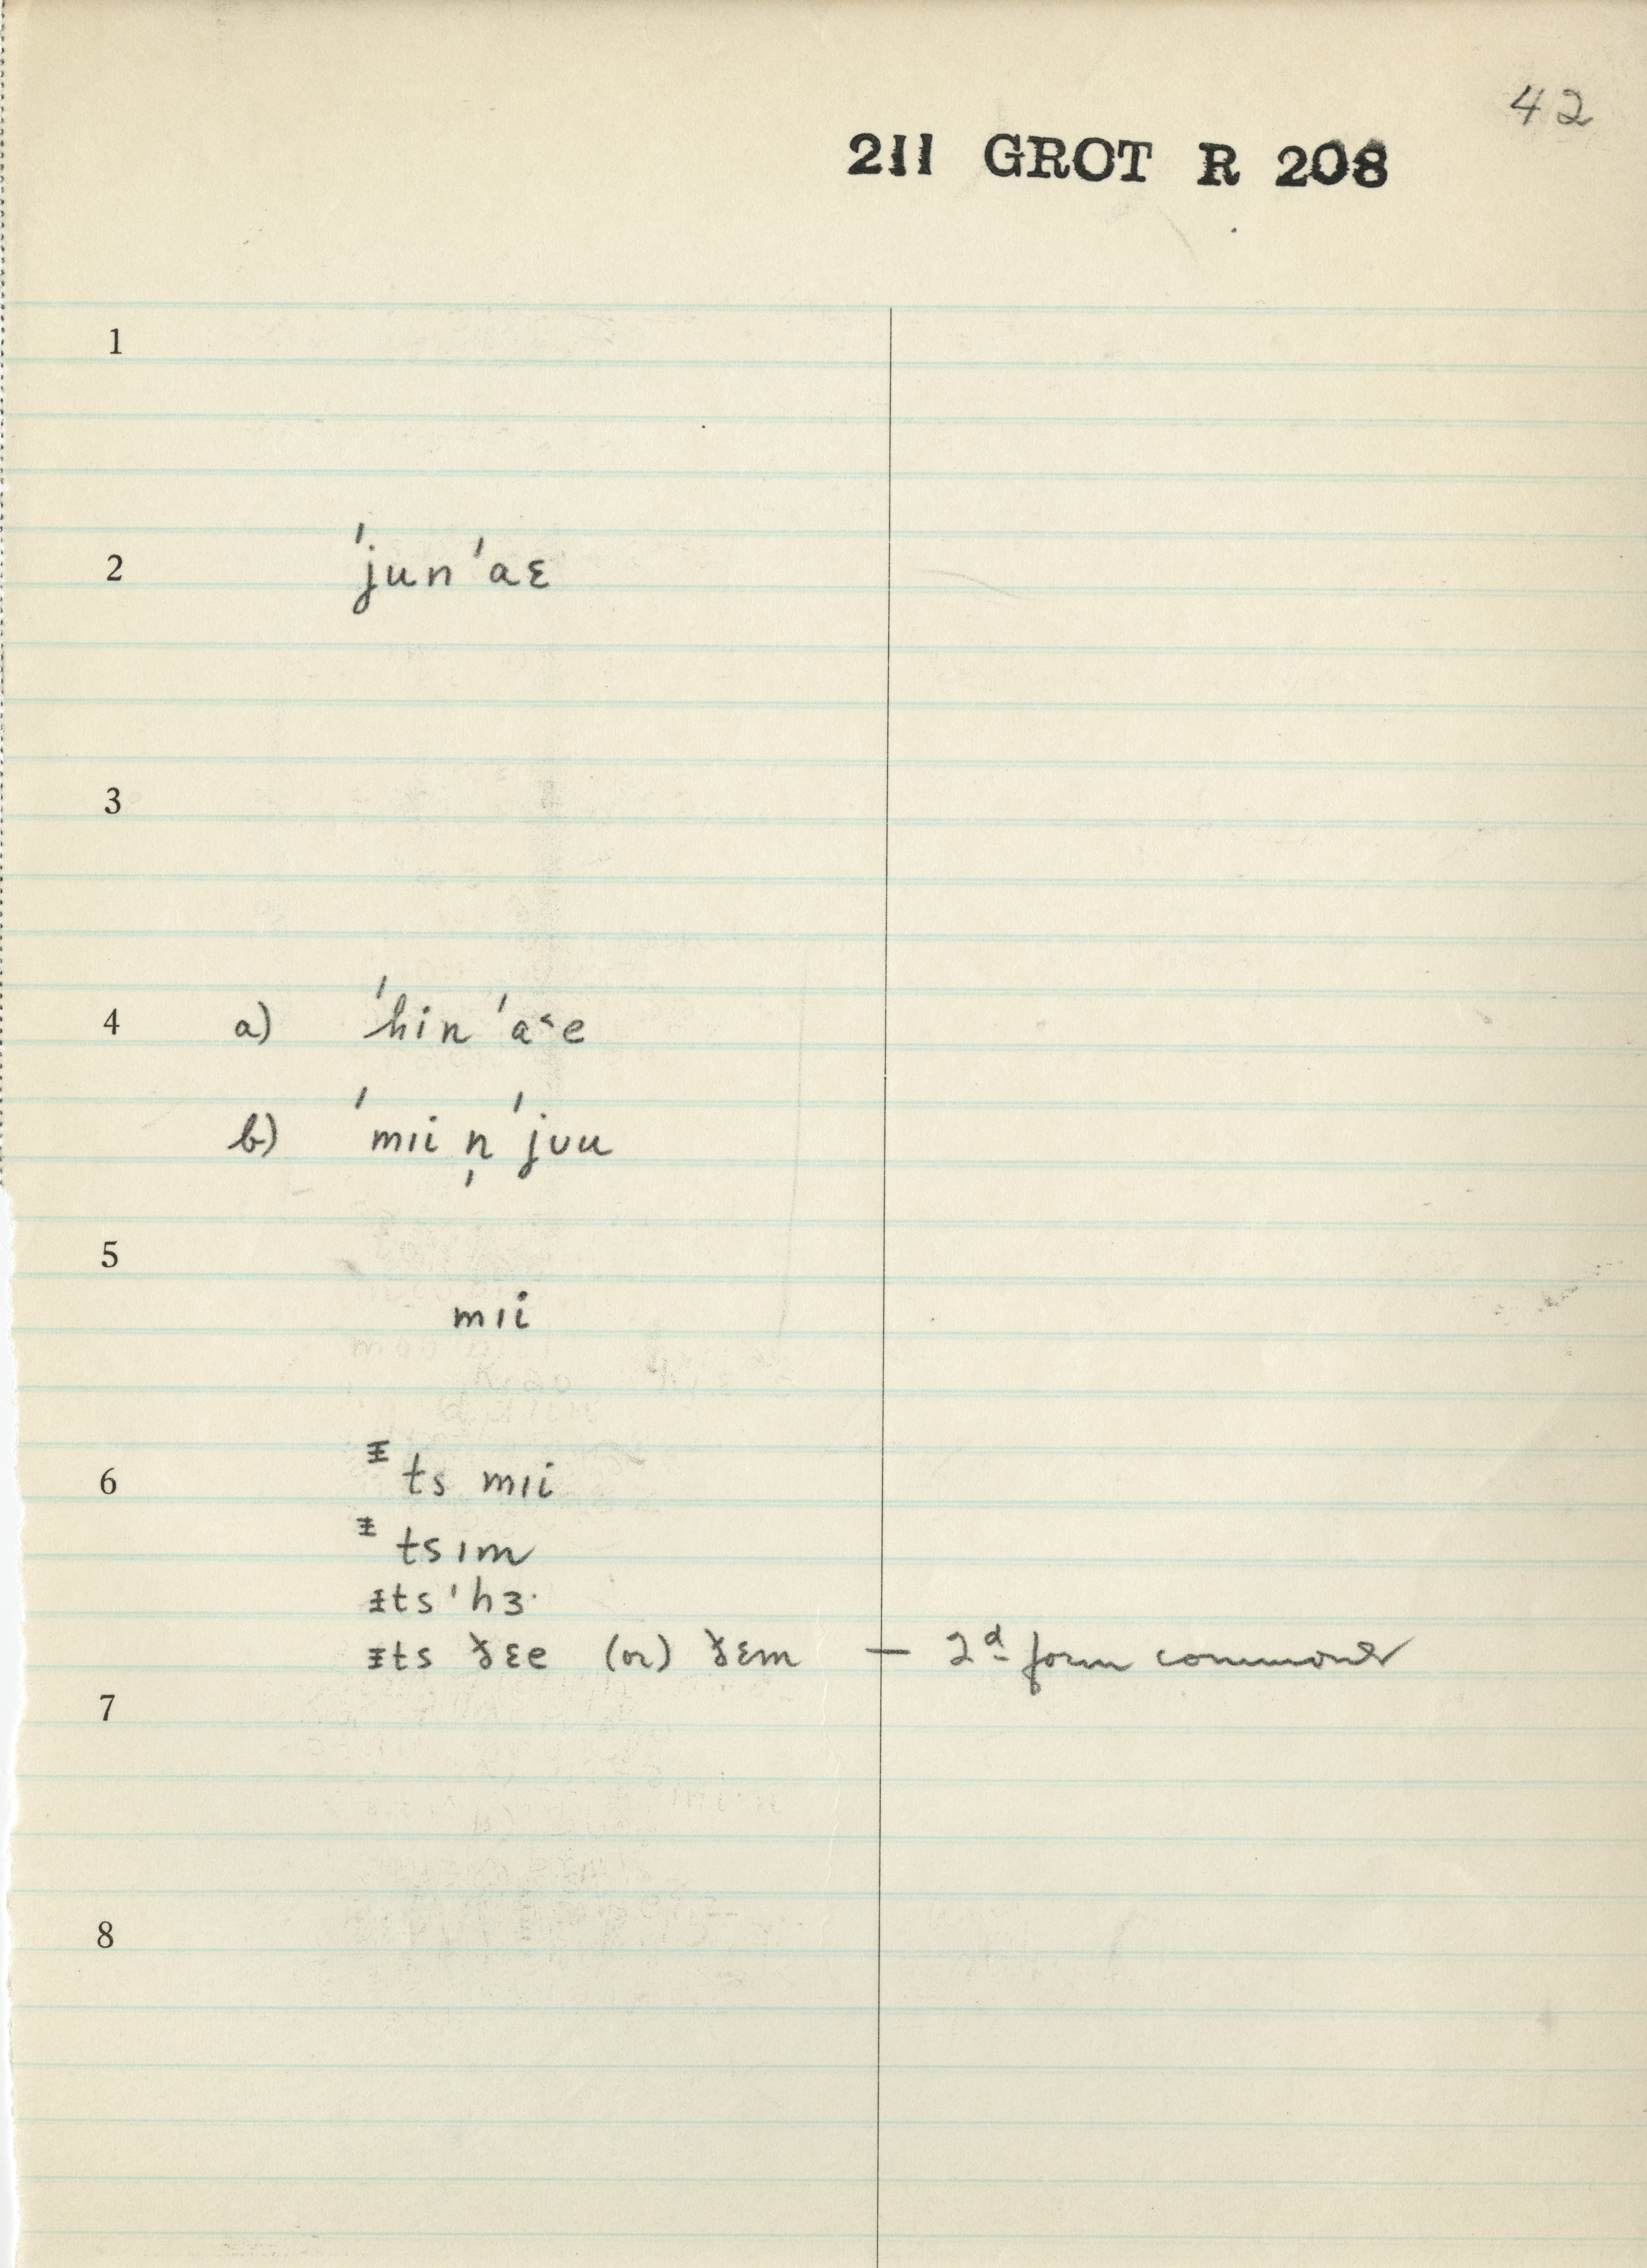 42
211 GROT R 208
1
2 ˈjun ˈaɛ
3
4 a) ˈhin ˈa˂e
b) ˈmɪi n̩ ˈjʊu
5
mɪi
6 ᵻts mɪi
ᵻtsɪm
ᵻts ˈhɜ·
ᵻts ð̵ɛe (or) ð̵ɛm — 2d form commoner
7
8